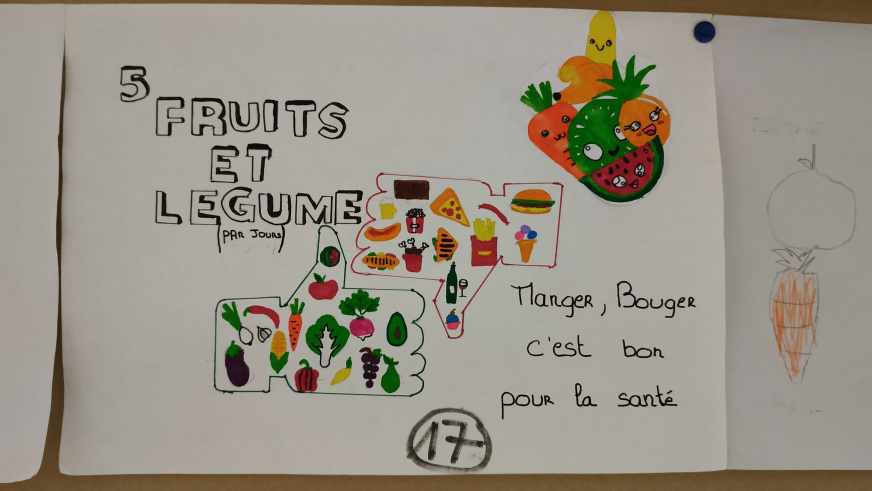 5
FRUITS
ET
LEGUME
(PAR JOURS)
Manger, Bouger
c'est bon
pour la santé
17